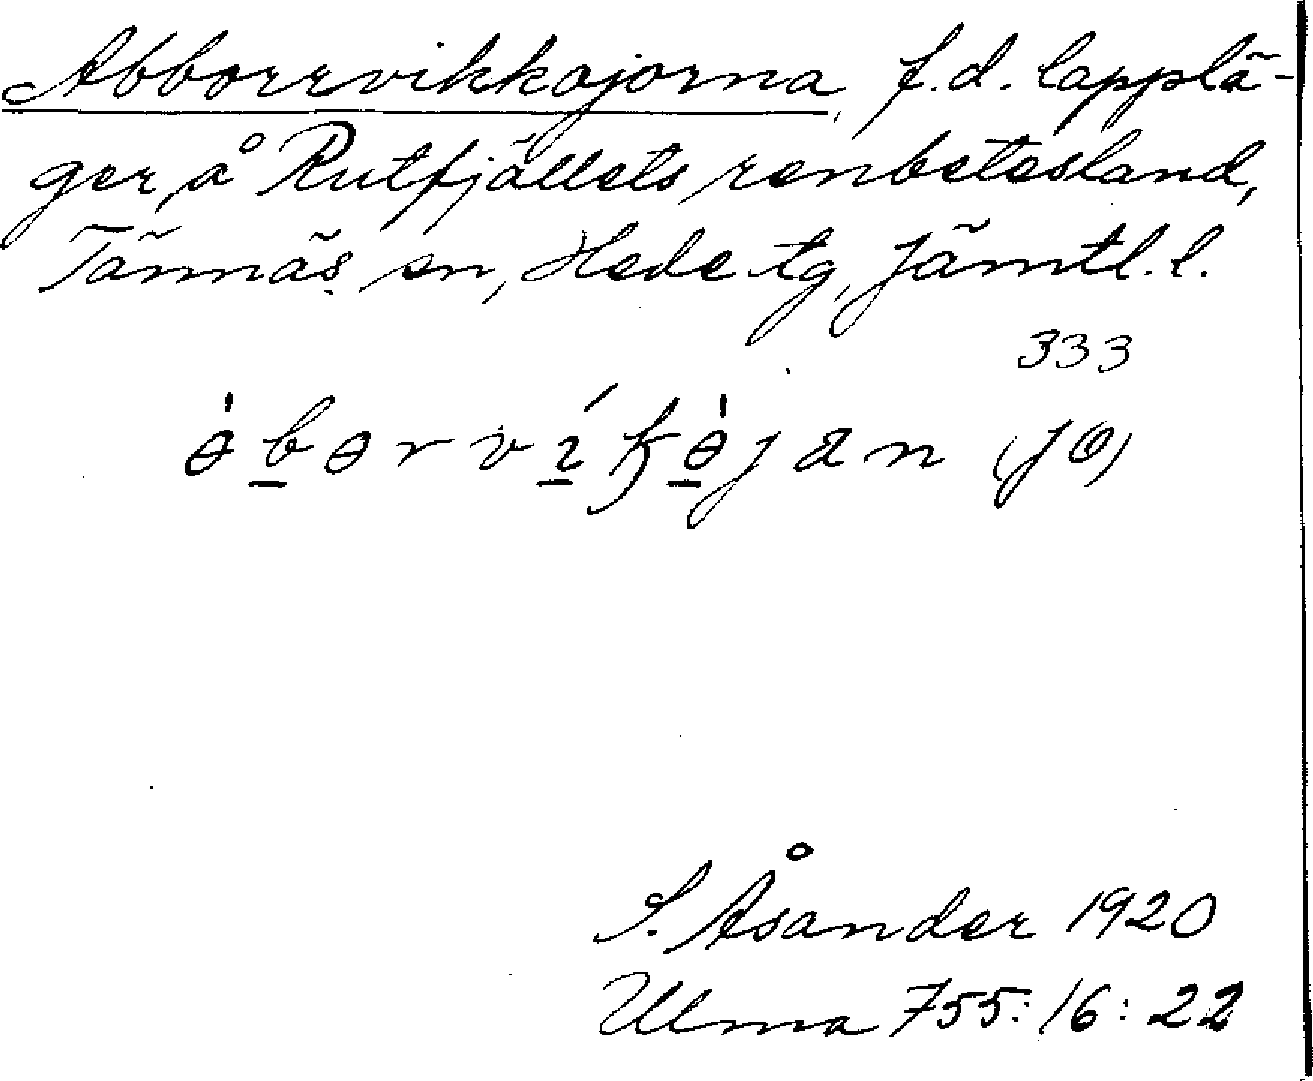 Abborrvikkojorna, f.d. lapplä-
ger, å Rutfjällets renbetesland,
Tännäs sn, Hede tg, Jämtl. l.
333
(JO)
S. Åsander 1920
Ulma 755:16:22